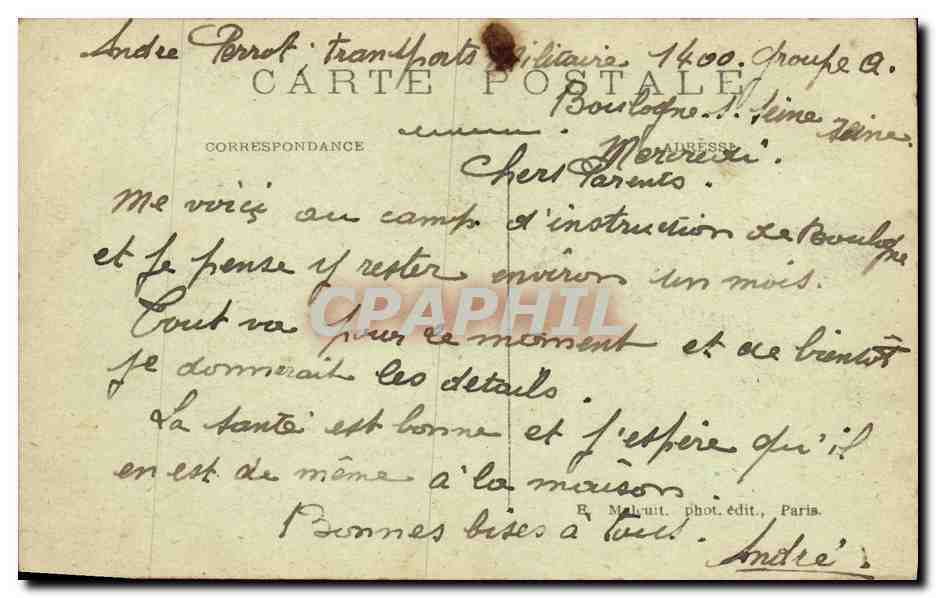 André Perrot, transports Militaire 1400. Groupe A.
CARTE POSTALE
Boulogne. s. Seine Seine
CORRESPONDANCE
ADRESSE
Mercredi.
Chers Parents.
Me voici au camp d'instruction de Boulogne
et je pense y rester environ un mois.
CPAPHIL
Tout va pour le moment et de bientôt
je donnerait les détails.
La santé est bonne et j'espère qu'il
en est de même à la maison.
E. Malcuit, phot. édit., Paris.
Bonnes bises à tous.
André.